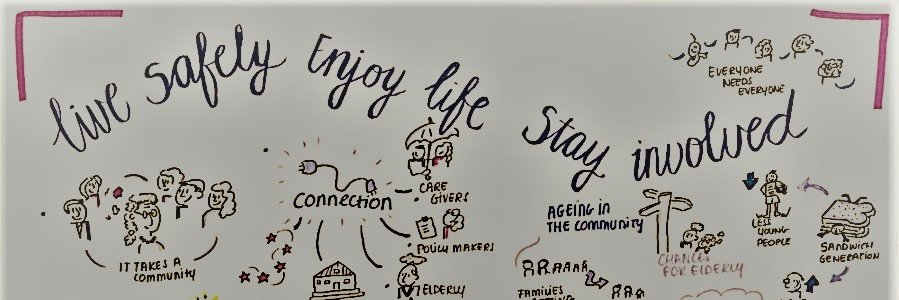 live safely Enjoy life Stay involved
EVERYONE
NEEDS
EVERYONE
IT TAKES A
COMMUNITY
CONNECTION
CARE
GIVERS
POLICY MAKERS
ELDERLY
AGEING IN
THE COMMUNITY
FAMILIES
CHANCES
FOR ELDERLY
LESS
YOUNG
PEOPLE
SANDWICH
GENERATION